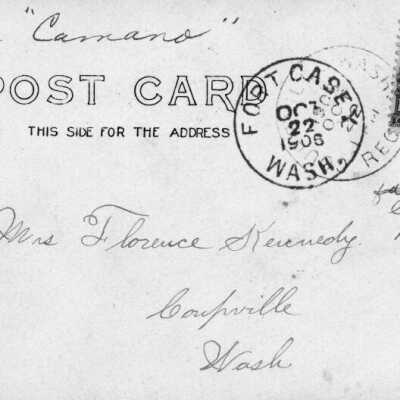 "Camano"
POST CARD
THIS SIDE FOR THE ADDRESS
FORT CASEY
OCT
22
1906
WASH.
WASH
REC
Mrs Florence Kennedy.
Coupville
Wash